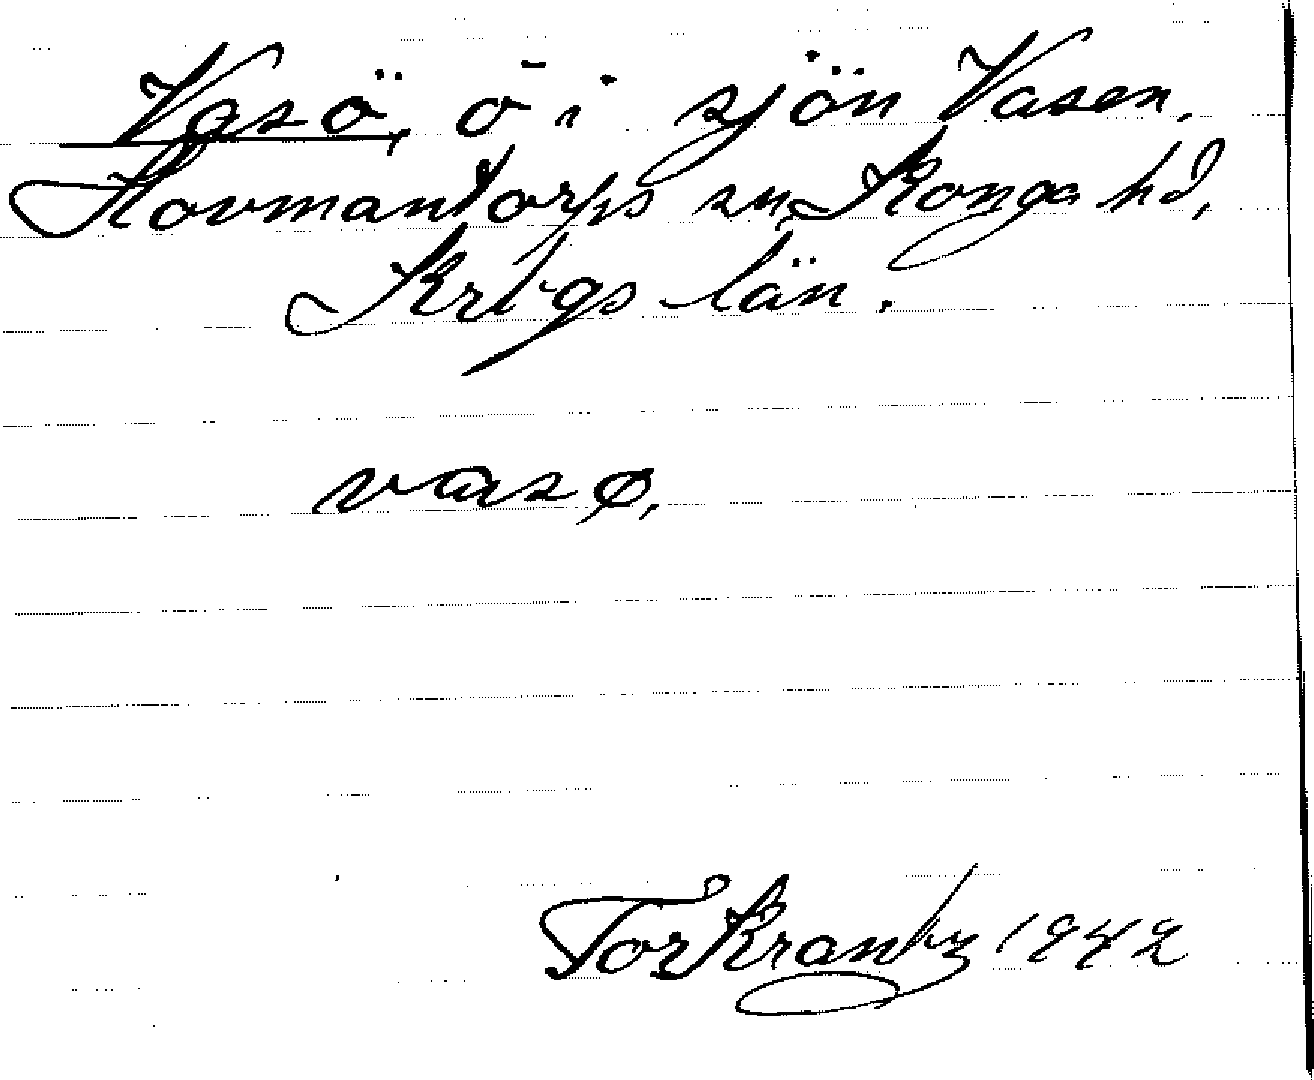 Vasö, ö i sjön Vasen.
Hovmantorps sn, Konga hd,
Krbgs län.
vasø,
Tor Krantz 1942